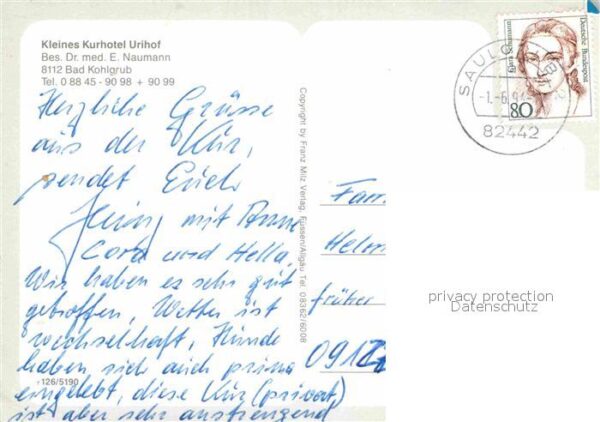 Kleines Kurhotel Urihof
Bes. Dr. med. E. Naumann
8112 Bad Kohlgrub
Tel. 0 88 45 - 90 98 + 90 99
Herzliche Grüsse
aus der Kur,
sendet Euch
Heinz mit Anne
Cora und Hella.
Wir haben es sehr gut
getroffen, Wetter ist
wechselhaft, Hunde
haben sich auch prima
eingelebt, diese Kur (privat)
ist aber sehr anstrengend
126/5190
Copyright by Franz Milz Verlag, Füssen/Allgäu Tel. 08362/6008
Deutsche Bundespost
Clara Schumann
80
SAULG
82442
Fam.
früher
privacy protection
Datenschutz